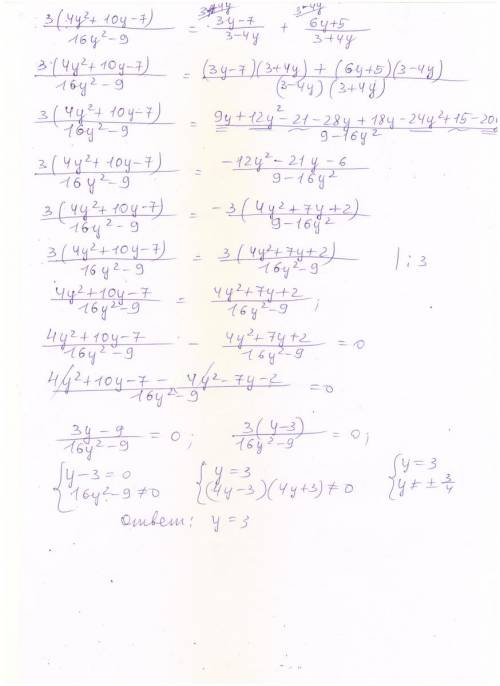 3+4y 3-4y
3(4y²+10y-7)/16y²-9 = 3y-7/3-4y + 6y+5/3+4y
3(4y²+10y-7)/16y²-9 = (3y-7)(3+4y)+(6y+5)(3-4y)/(3-4y)(3+4y)
3(4y²+10y-7)/16y²-9 = 9y+12y²-21-28y+18y-24y²+15-20
3(4y²+10y-7)/16y²-9 = -12y²-21y-6/9-16y²
3(4y²+10y-7)/16y²-9 = -3(4y²+7y+2)/9-16y²
3(4y²+10y-7)/16y²-9 = 3(4y²+7y+2)/16y²-9 |:3
4y²+10y-7/16y²-9 = 4y²+7y+2/16y²-9;
4y²+10y-7/16y²-9 - 4y²+7y+2/16y²-9 = 0
4y²+10y-7-4y²-7y-2/16y²-9 = 0
3y-9/16y²-9 = 0; 3(y-3)/16y²-9 = 0;
{y-3=0 {y=3 {y=3
16y²-9≠0 (4y-3)(4y+3)≠0 y≠±3/4
ответ: y=3